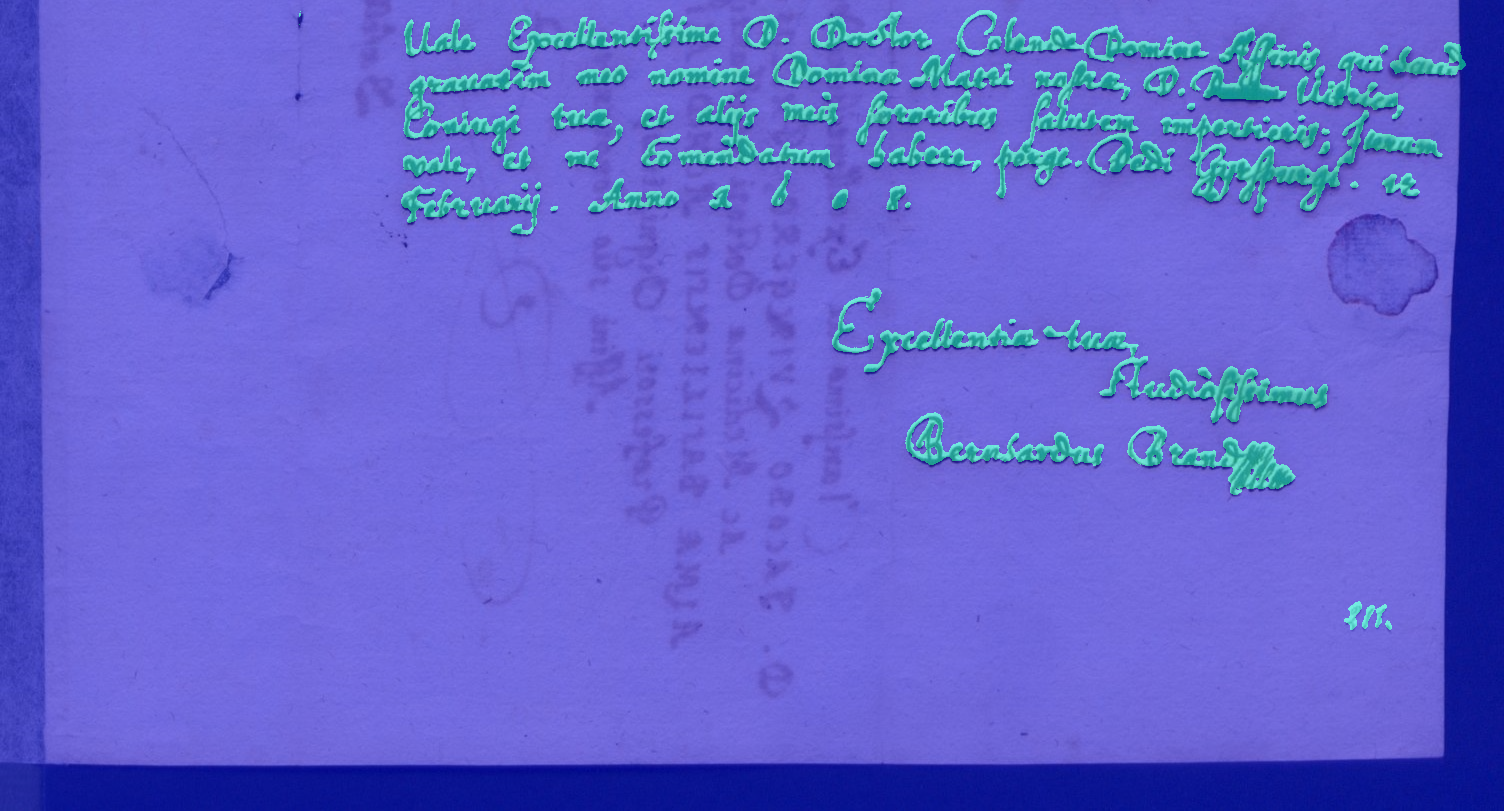 Vale Excellentissime D. Doctor Colende Domine Affinis, qui haud
gravatim meo nomine Dominæ Matri nostræ, D.
Coniugi tuæ, et alijs meis sororibus salutem impertieris; Iterum
vale, et me comēdatum habere, perge. Dedi
Februarij. Anno 1 6 0 8.
Excellentiæ tuæ
studiosissimus
Bernhardus Brand